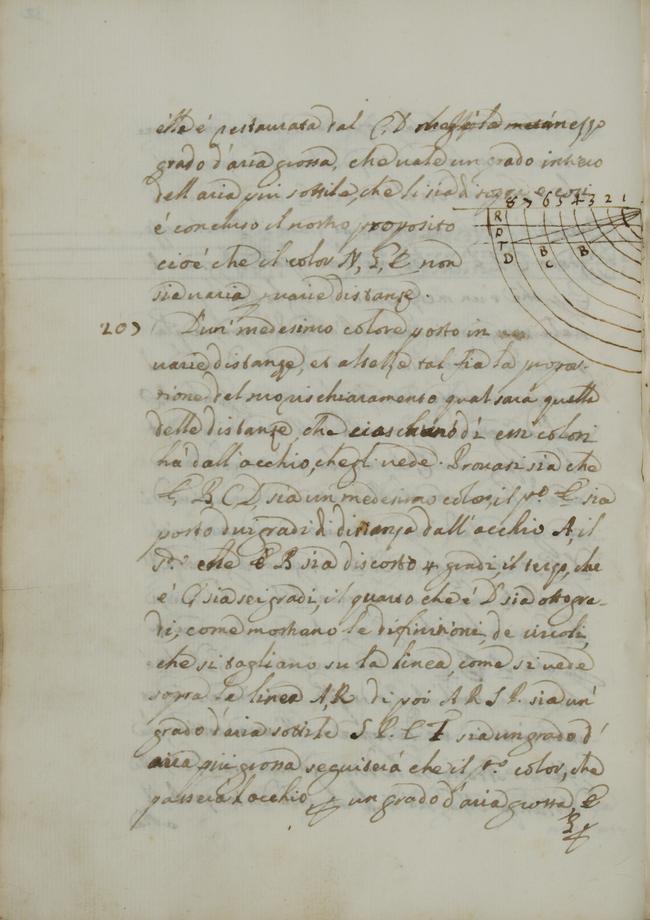 ella é restaurata dal C, D mezzo
grado d'aria grossa, che vale un grado intiero
dell aria più sottile, che li sia di sopra, e così
8 7 6 5 4 3 2 1
é concluso il nostro proposito
R
cioé che il color N, F, E non
T B B
D C
sia varia varie distanze.
20) D'un' medesimo colore posto in
varie distanze, et altezze tal sia la propor-
tione del suo rischiaramento qual sará quella
delle distanze, che ciaschuno di essi colori
ha dall' occhio, che gl' vede. Provasi sia che
B, C, D, sia un medesimo color, il p.º E sia
posto dui gradi di distanza dall' occhio A, il
s.º che é B sia discosto 4 gradi, il terzo, che
é C sia sei gradi, il quarto che é D sia otto gra-
di, come mostrano le difinitioni de circoli,
che si tagliano su la linea, come si vede
sopra la linea A, R di poi A R S P. sia un'
grado d'aria sottile S P. E T sia un grado d'
aria più grossa seguiterá che il p.º color, che
passerá l'occhio un grado d'aria grossa, E